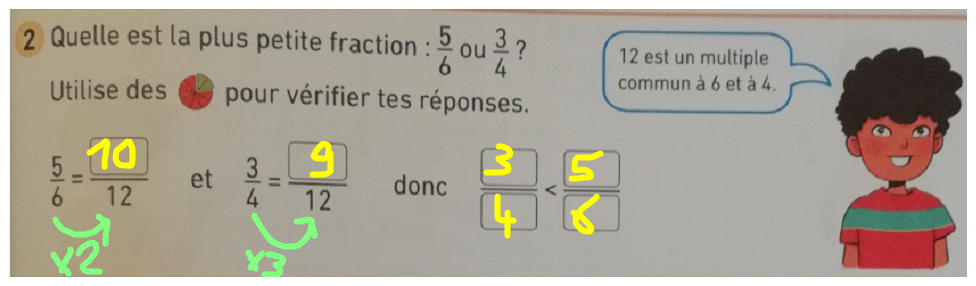 2 Quelle est la plus petite fraction : 5/6 ou 3/4 ?
Utilise des pour vérifier tes réponses.
12 est un multiple
commun à 6 et à 4.
5/6 = 10/12 et 3/4 = 9/12 donc 3/4 < 5/6
x2 x3